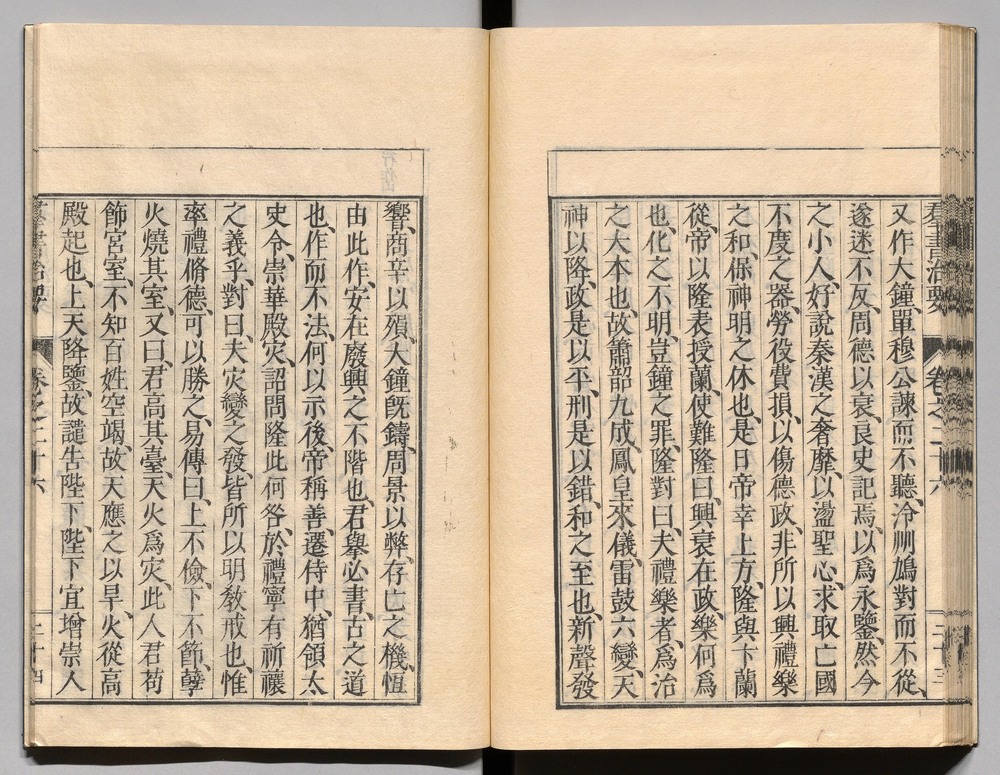 羣書治要 卷之二十六 二十三
又作大鐘、單穆公諫而不聽、泠州鳩對而不從、
遂迷不反、周德以衰、良史記焉、以爲永鑒、然今
之小人、好說秦漢之奢靡、以盪聖心、求取亡國
不度之器、勞役費損、以傷德政、非所以興禮樂
之和、保神明之休也、是日帝幸上方、隆與卞蘭
從、帝以隆表授蘭、使難隆曰、興衰在政、樂何爲
也、化之不明、豈鐘之罪、隆對曰、夫禮樂者、爲治
之大本也、故簫韶九成、鳳皇來儀、雷鼓六變、天
神以降、政是以平、刑是以錯、和之至也、新聲發
響、商辛以殞、大鐘旣鑄、周景以弊、存亡之機、恆
由此作、安在廢興之不階也、君擧必書、古之道
也、作而不法、何以示後、帝稱善、遷侍中、猶領太
史令、崇華殿災、詔問隆此何咎、於禮寧有祈禳
之義乎、對曰、夫災變之發、皆所以明敎戒也、惟
率禮脩德、可以勝之、易傳曰、上不儉、下不節、孽
火燒其室、又曰、君高其臺、天火爲災、此人君苟
飾宮室、不知百姓空竭、故天應之以旱、火從高
殿起也、上天降鑒、故譴告陛下、陛下宜增崇人
羣書治要 卷之二十六 二十四